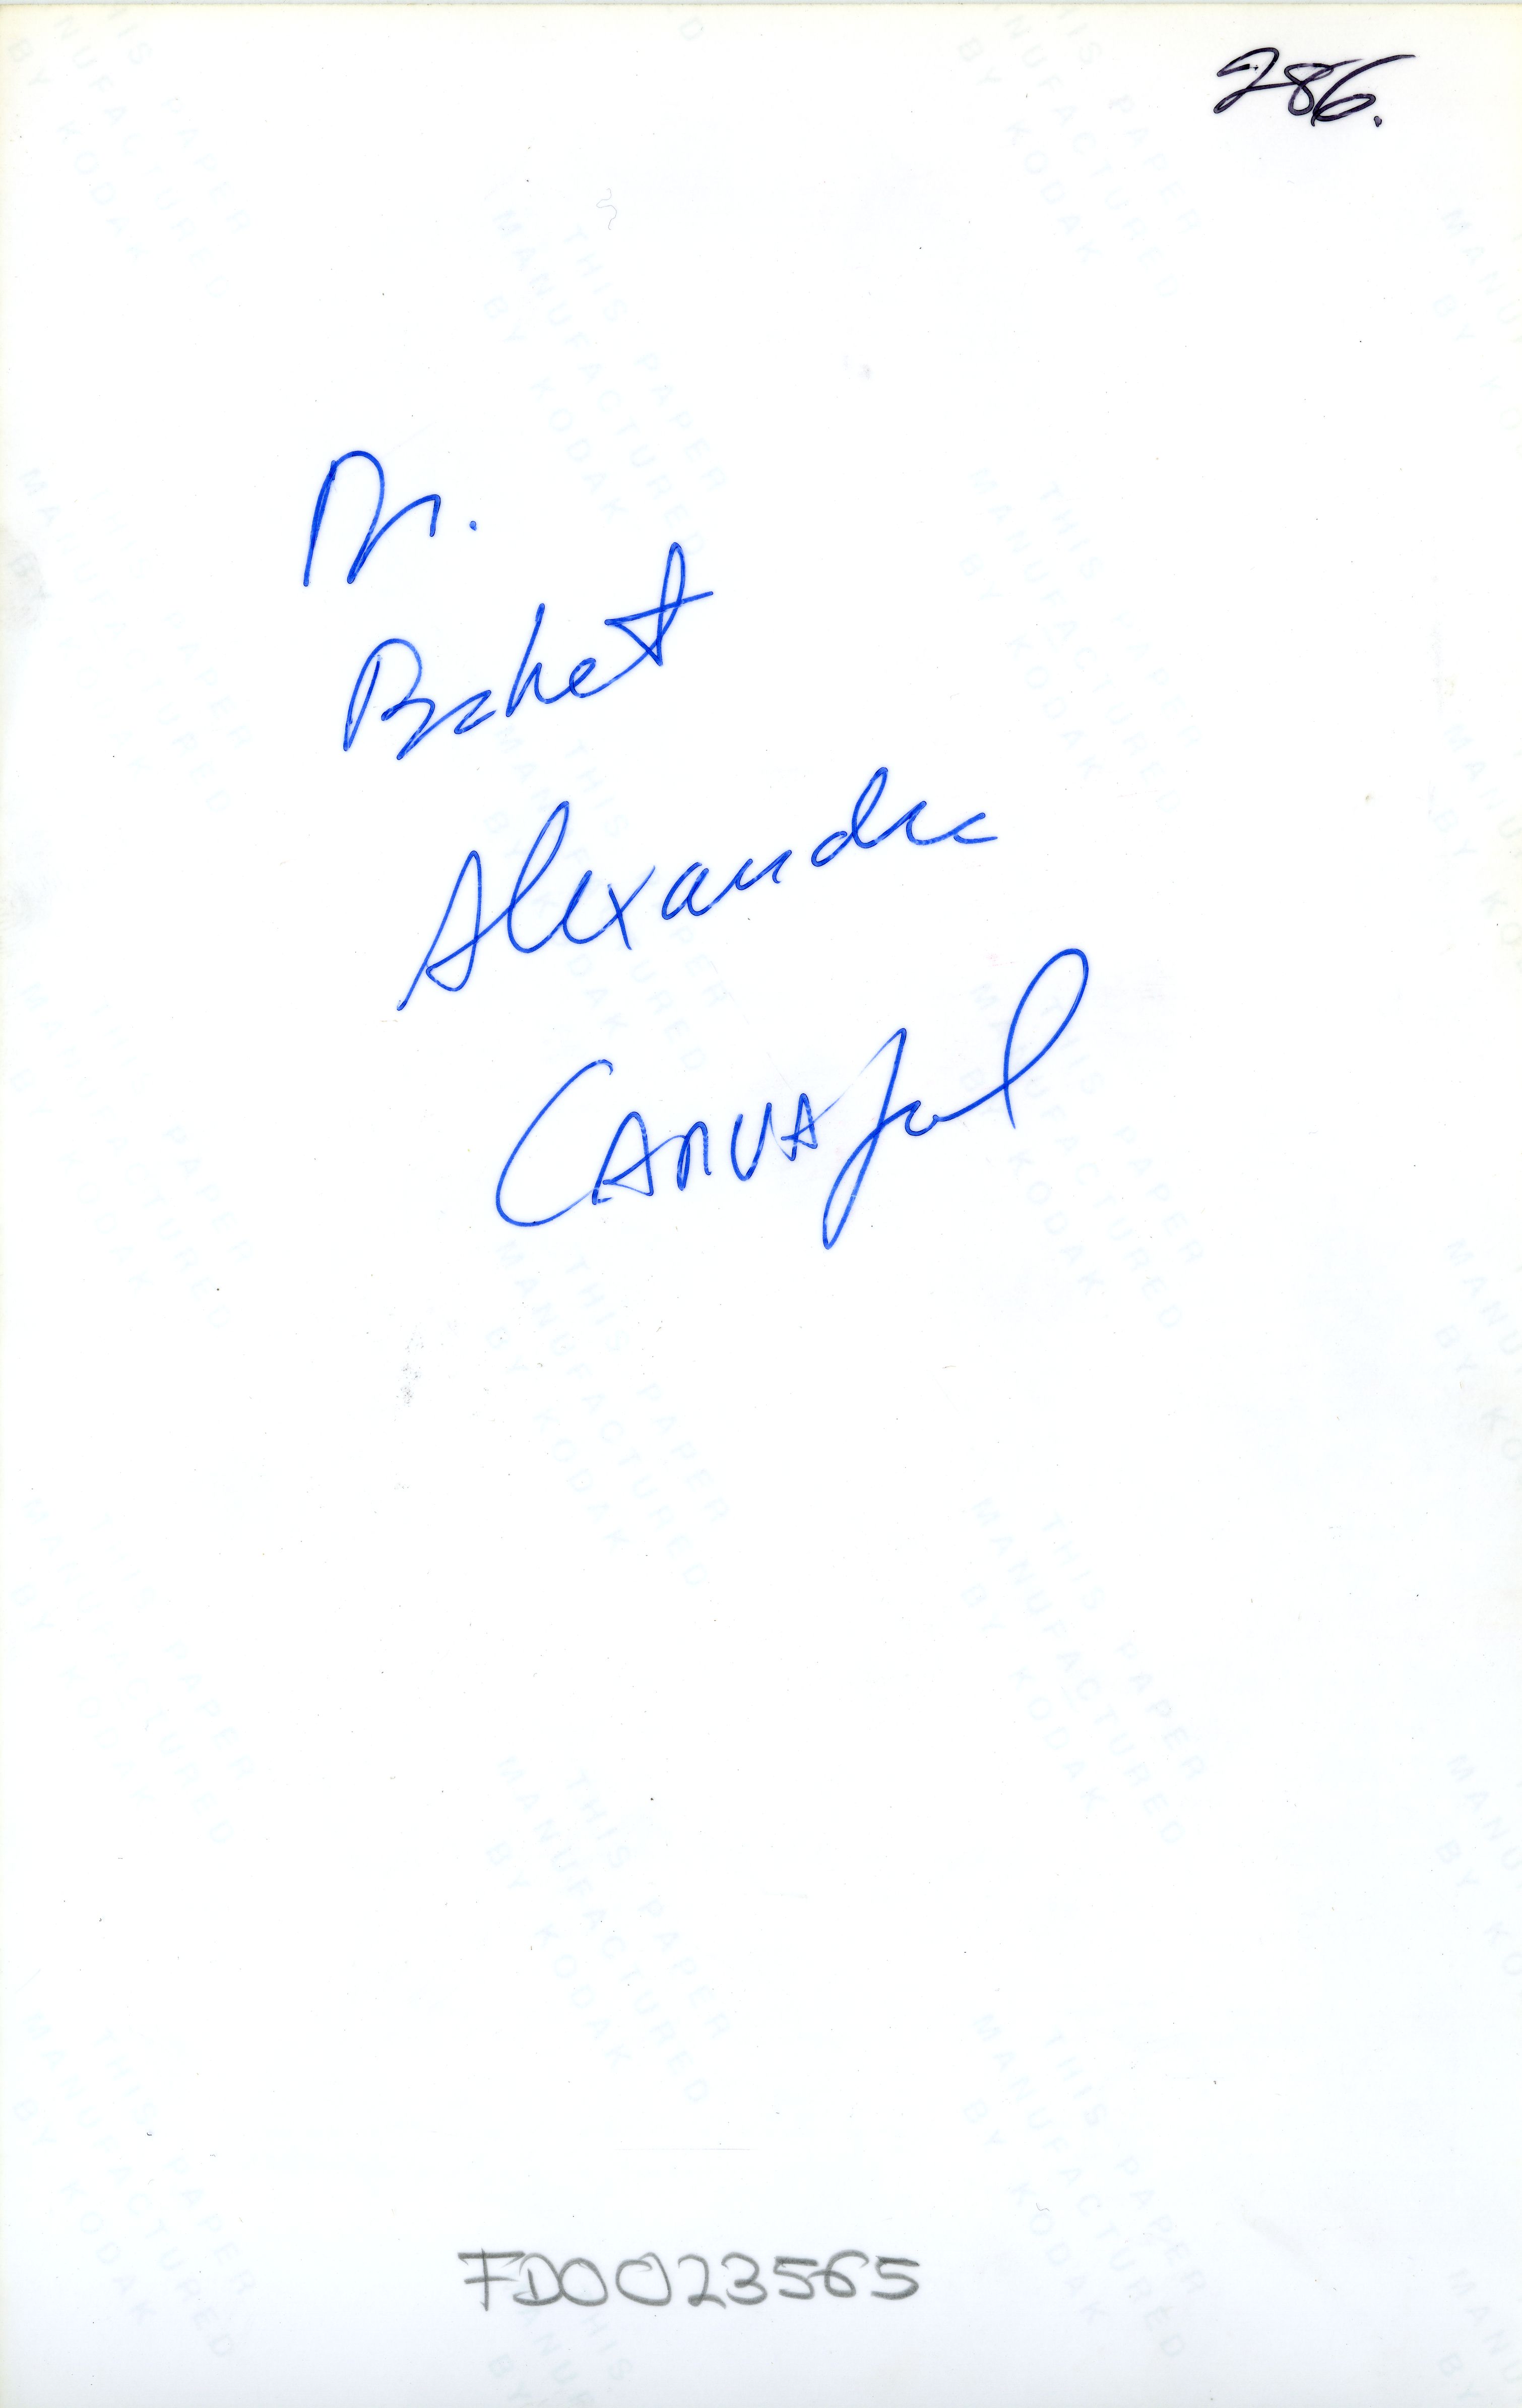 286.
Dr.
Alexandra
CARVAJAL
FD0023565
THIS PAPER
MANUFACTURED
BY KODAK